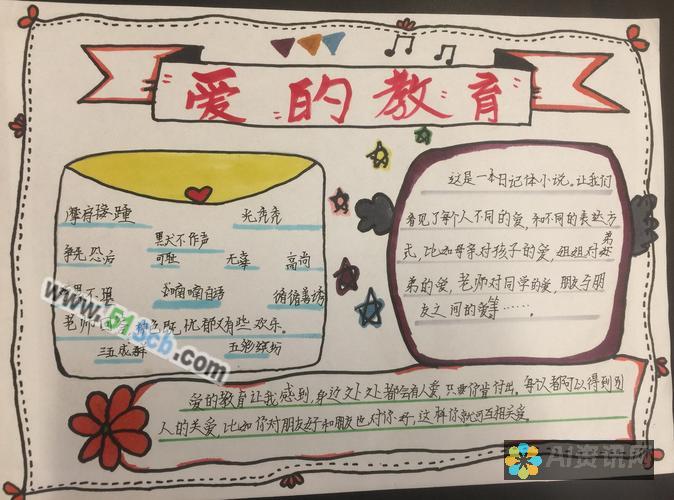 爱的教育
摩肩接踵 光秃秃
争先恐后 默不作声 可耻 无辜 高尚
喃喃自语 循循善诱
老师 既忧郁又有些欢乐。
三五成群 五彩缤纷
这是一本日记体小说。让我们
看见了每个人不同的爱,和不同的表达方
式,比如母亲对孩子的爱,姐姐对弟
弟的爱,老师对同学的爱,朋友与朋
友之间的爱等……。
爱的教育让我感到,身边处处都会有人爱,只要你肯付出。每次都可以得到别
人的关爱,比如你对朋友好和朋友也对你好,这样你就可互相关爱
www.51scb.com
AI资讯网